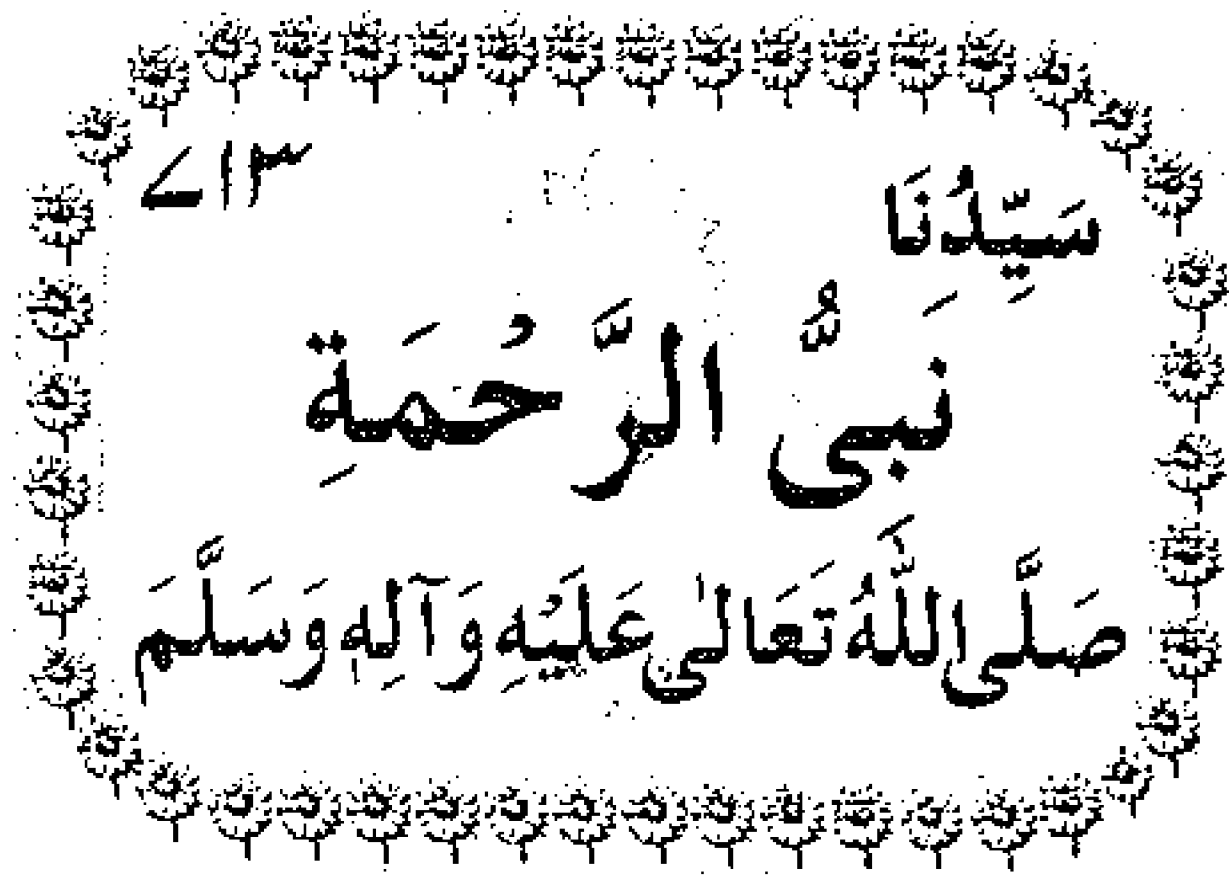 سَيِّدُنَا ۷۱۳
نَبِىُّ الرَّحْمَةِ
صَلَّى اللَّهُ تَعَالىٰ عَلَيْهِ وَآلِهِ وَسَلَّمَ